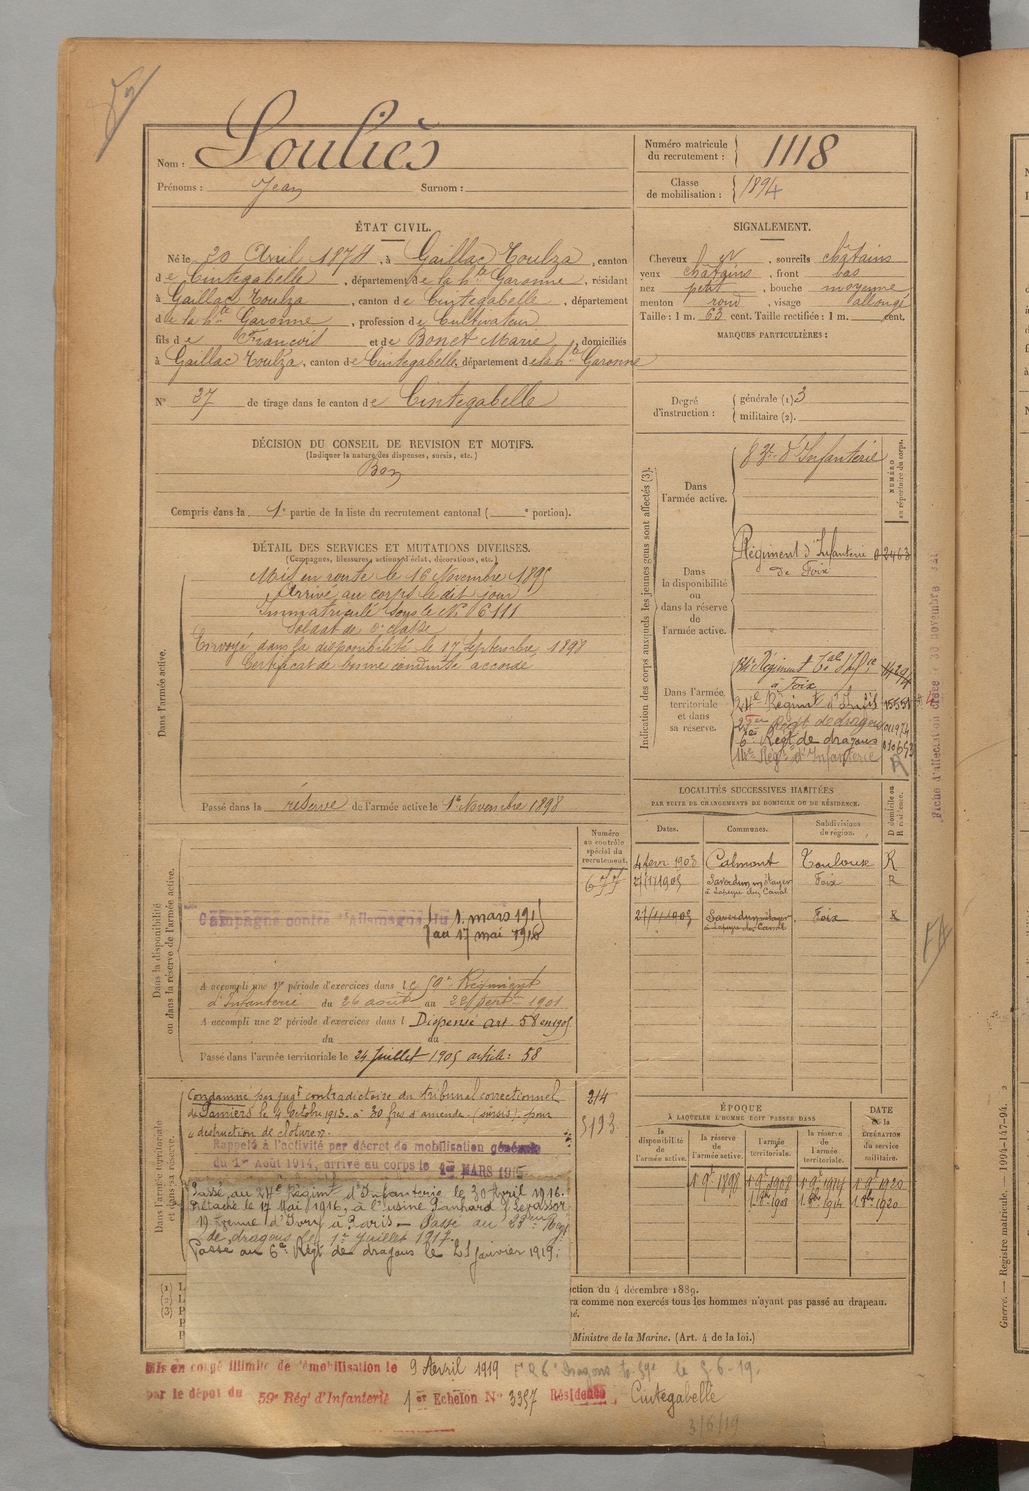 Nom : Souliès
Prénoms : Jean Surnom :
Numéro matricule du recrutement : 1118
Classe de mobilisation : 1894
ÉTAT CIVIL.
Né le 20 Avril 1874, à Gaillac Toulza, canton
de Cintegabelle, département de la hte Garonne, résidant
à Gaillac Toulza, canton de Cintegabelle, département
de la hte Garonne, profession de Cultivateur
fils de François et de Bonet Marie, domiciliés
à Gaillac Toulza, canton de Cintegabelle, département de la hte Garonne
N° 37 de tirage dans le canton de Cintegabelle
SIGNALEMENT.
Cheveux , sourcils châtains
yeux châtains, front bas
nez petit, bouche moyenne,
menton rond, visage allongé
Taille : 1 m. 63 cent. Taille rectifiée : 1 m. cent.
MARQUES PARTICULIÈRES :
Degré d'instruction : générale (1) 3
militaire (2).
DÉCISION DU CONSEIL DE REVISION ET MOTIFS.
(Indiquer la nature des dispenses, sursis, etc.)
Bon
Compris dans la 1e partie de la liste du recrutement cantonal ( e portion).
DÉTAIL DES SERVICES ET MUTATIONS DIVERSES.
(Campagnes, blessures, actions d'éclat, décorations, etc.)
Dans l'armée active.
Mis en route le 16 Novembre 1895
Arrivé au corps le dit jour
Immatriculé sous le N° 6111
Soldat de 2e classe
Envoyé dans la disponibilité le 17 Septembre 1898
Certificat de bonne conduite accordé
Passé dans la réserve de l'armée active le 1er Novembre 1898
Indication des corps auxquels les jeunes gens sont affectés (3).
NUMÉRO au répertoire du corps.
Dans l'armée active.
d'Infanterie
Dans la disponibilité ou dans la réserve de l'armée active.
Régiment d'Infanterie 02463
de Foix
Dans l'armée territoriale et dans sa réserve.
134e Régiment Tal d'Ifie
à Foix
24e Régimt d'Inf
Régt de dragons
6e Régt de dragons
Régt d'Infanterie
R
Fiche d'affectation créée : 30 novembre
LOCALITÉS SUCCESSIVES HABITÉES
PAR SUITE DE CHANGEMENTS DE DOMICILE OU DE RÉSIDENCE.
Dates. Communes. Subdivisions de région. D domicile ou R résidence.
4 fevr 1903 Calmont Toulouse R
27/11/1905 Saverdun métayer Foix R
à Lapeyre du Canal
27/11/1905 Saverdun métayer Foix R
à Lapeyre du Canal
Dans la disponibilité ou dans la réserve de l'armée active.
Numéro au contrôle spécial du recrutement.
677
Campagne contre l'Allemagne du 1 mars 1915
au 17 mai 1916
A accompli une 1re période d'exercices dans le 59e Régiment
d'Infanterie du 26 août au 22 Septbre 1901
A accompli une 2e période d'exercices dans l Dispensé art. 58 en 1905
du au
Passé dans l'armée territoriale le 24 Juillet 1905 article 58
Dans l'armée territoriale et dans sa réserve.
Condamné par jugt contradictoire du tribunal correctionnel
de Pamiers le 4 Octobre 1913 à 30 frcs d'amende (sursis) pour
"destruction de clotures".
214
5193
Rappelé à l'activité par décret de mobilisation générale
du 1er Août 1914, arrivé au corps le 1er MARS 1915
Passé au 24e Régimt d'Infanterie le 30 Avril 1916.
Détaché le 17 Mai 1916, à l'usine Panhard & Levassor
19 Avenue d'Ivry à Paris – Passé au Régt
de dragons le 1er Juillet 1917.
Passé au 6e Régt de dragons le 21 janvier 1919.
ÉPOQUE
À LAQUELLE L'HOMME DOIT PASSER DANS
la disponibilité de l'armée active. la réserve de l'armée active. l'armée territoriale. la réserve de l'armée territoriale.
DATE de la LIBÉRATION du service militaire.
1 9bre 1898 1 9bre 1908 1 9bre 1914 1 9bre 1920
1 8bre 1914 1 8bre 1920
(1)
(2)
(3)
ction du 4 décembre 1889.
ra comme non exercés tous les hommes n'ayant pas passé au drapeau.
Ministre de la Marine. (Art. 4 de la loi.)
Mis en congé illimité de démobilisation le 9 Avril 1919
par le dépôt du 59e Régt d'Infanterie 1er Echelon N° 3357 Résidence Cintegabelle
3/6/19
Guerre. — Registre matricule. — 1994-147-94.